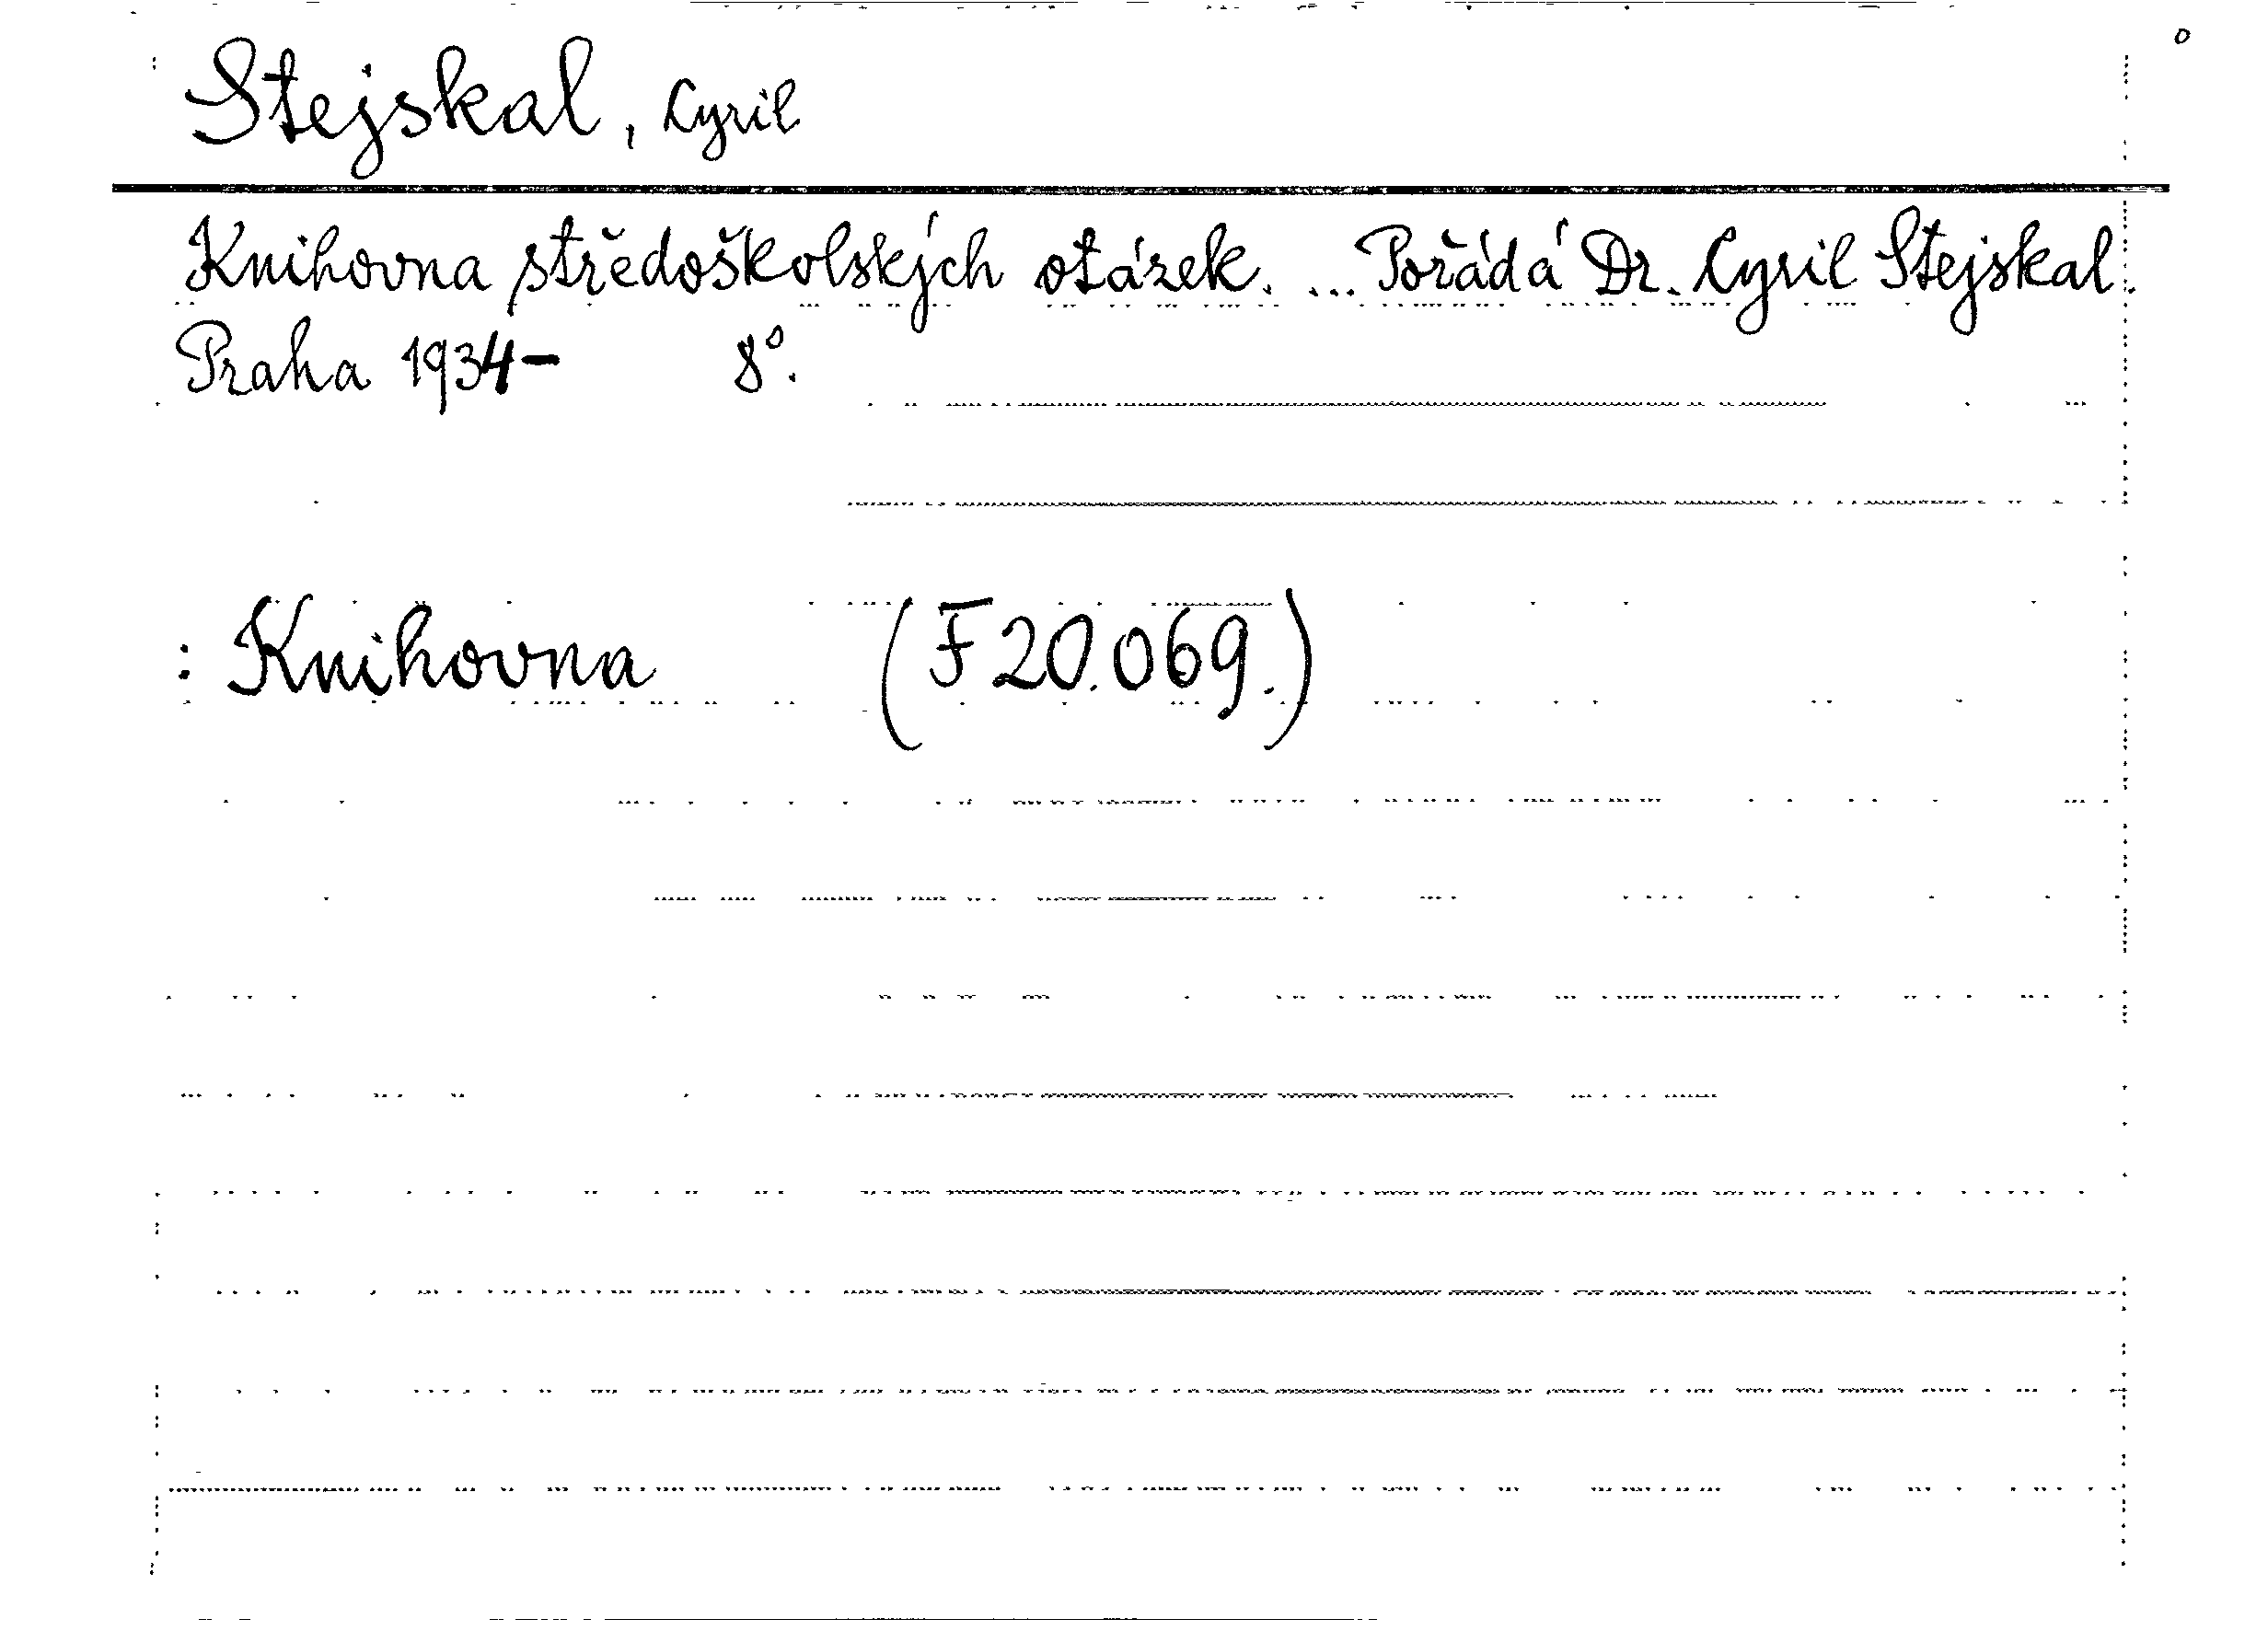 Stejskal, Cyril
Knihovna středoškolských otázek. ... Pořádá Dr. Cyril Stejskal.
Praha 1934- 8°.
: Knihovna (F 20.069.)